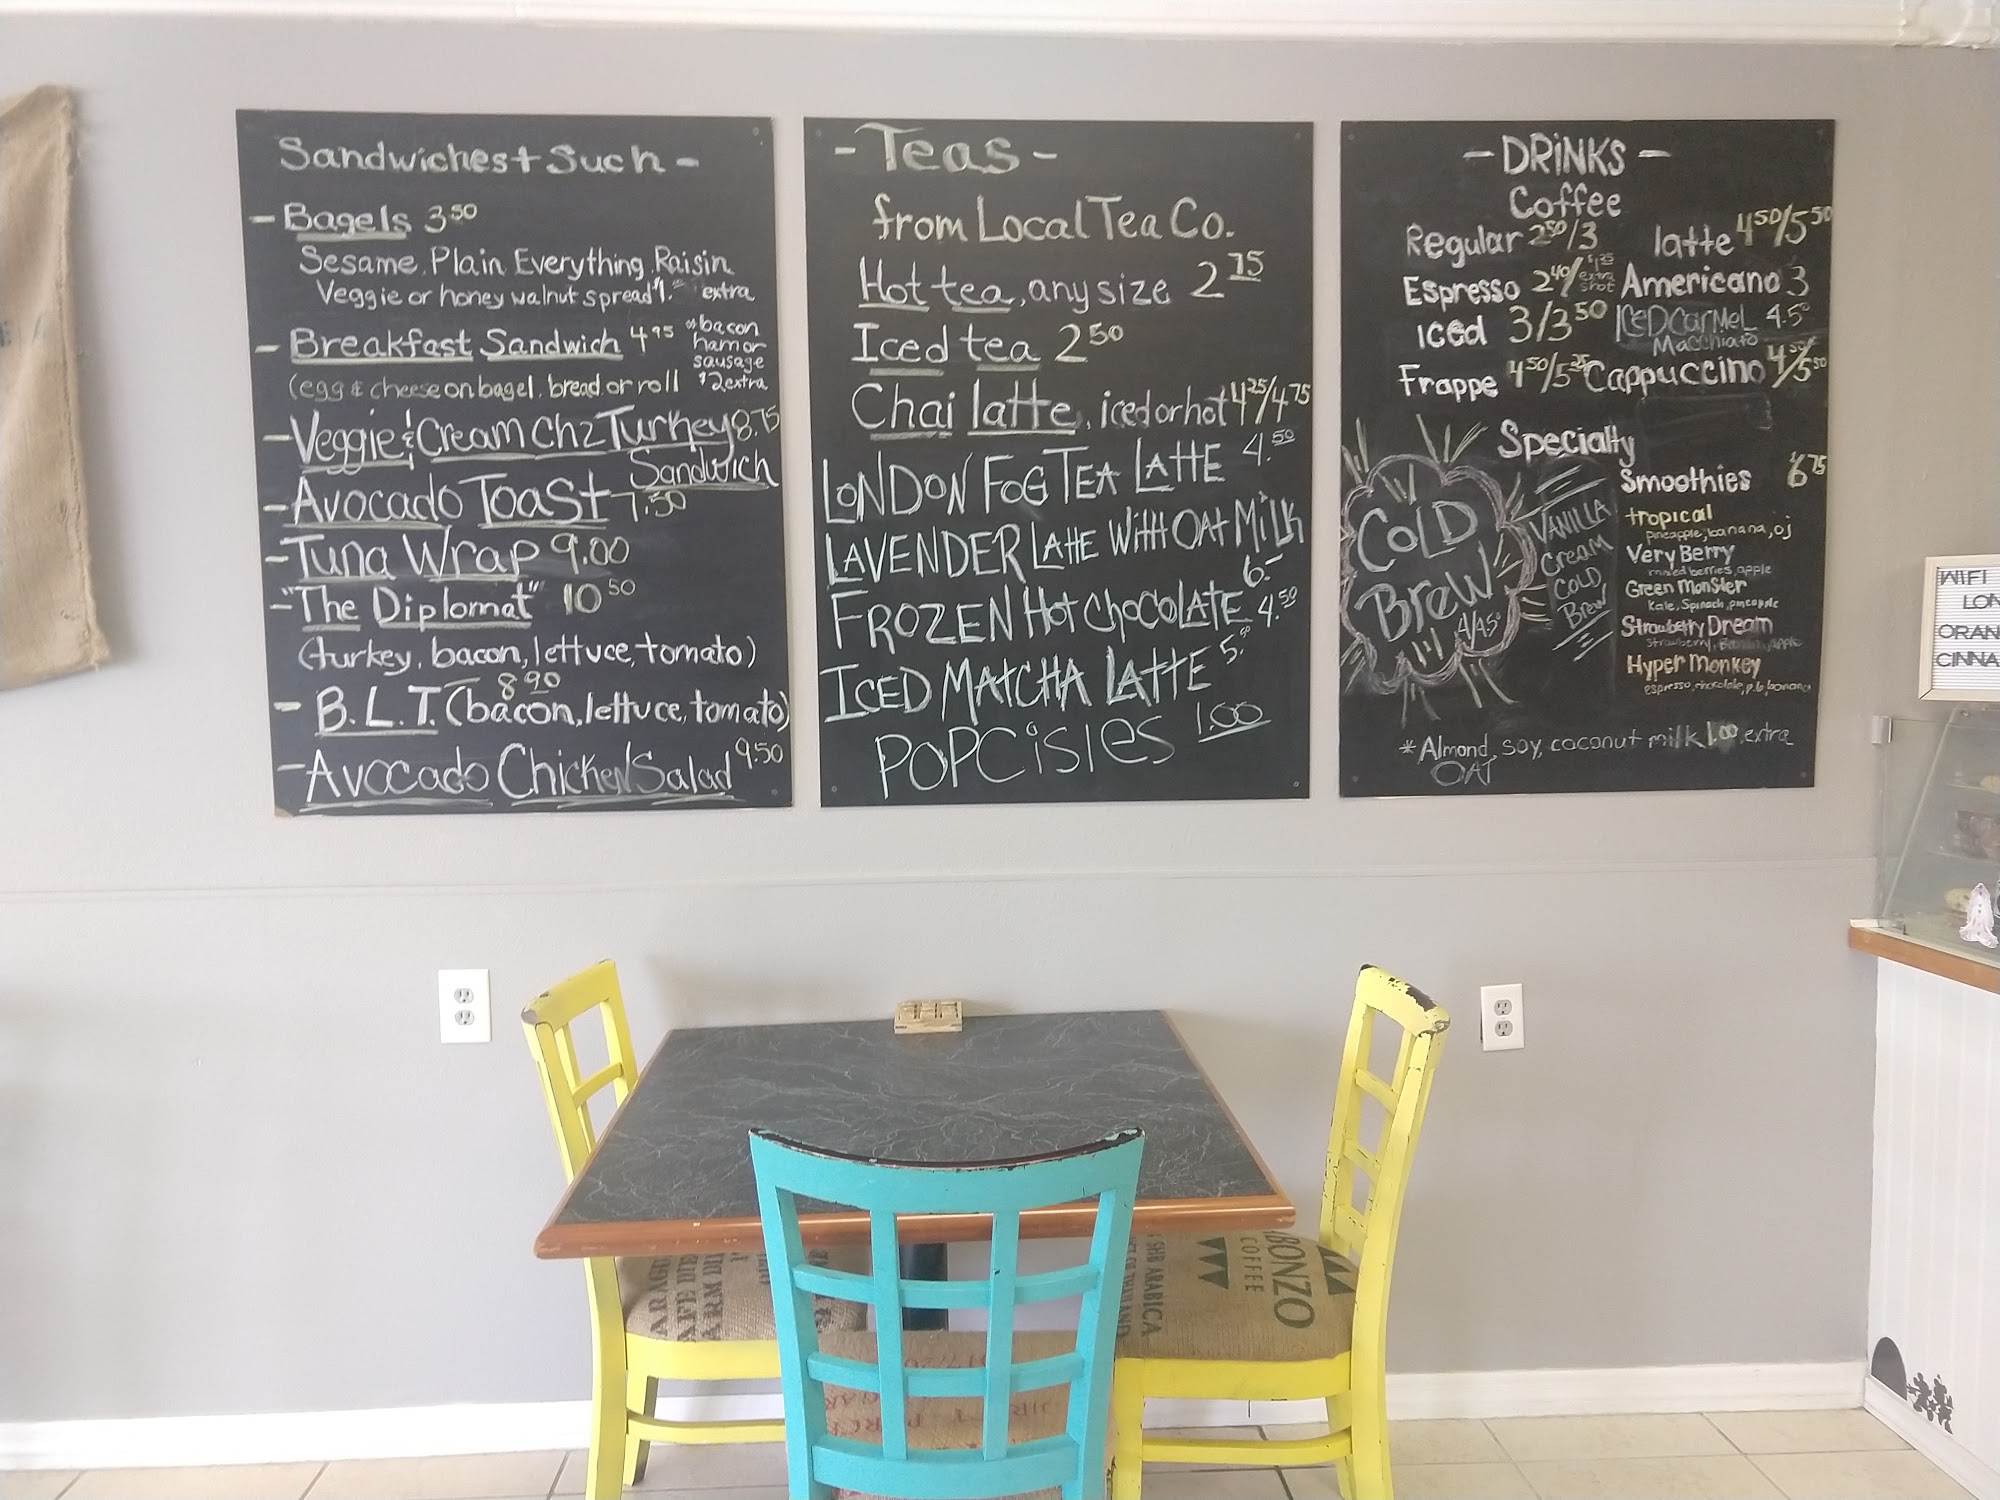 Sandwiches + Such -
- Bagels 3 50
Sesame, Plain, Everything, Raisin
Veggie or honey walnut spread $1. extra
- Breakfast Sandwich 4 95
* bacon
ham or
sausage
$2 extra
(egg & cheese on bagel, bread, or roll
- Veggie & Cream Chz Turkey 8.75
Sandwich
- Avocado Toast 7.50
- Tuna Wrap 9.00
- "The Diplomat" 10 50
(turkey, bacon, lettuce, tomato)
8 90
- B.L.T. (bacon, lettuce, tomato)
- Avocado Chicken Salad 9.50
- Teas -
from Local Tea Co.
Hot tea, any size 2 75
Iced tea 2 50
Chai latte, iced or hot 4 25/4 75
LONDON FOG TEA LATTE 4.50
LAVENDER LATTE WITH OAT MILK
6.-
FROZEN HOT CHOCOLATE 4.50
ICED MATCHA LATTE 5.50
POPCISIES 1.00
- DRiNKS -
Coffee
Regular 2 50/3
Espresso 2 40/ extra shot
Iced 3/3 50
Frappe 4 50/5 25
latte 4 50/5 50
Americano 3
ICED CARMEL 4.50
Macchiato
Cappuccino 4 50/5 50
Specialty
COLD
BREW
4/4.50
VANILLA
Cream
COLD
Brew
Smoothies 6 75
tropical
pineapple, banana, oj
Very Berry
mixed berries, apple
Green Monster
kale, Spinach, pineapple
Strawberry Dream
Strawberry, Banana, Apple
Hyper Monkey
espresso, chocolate, p.b, banana
* Almond, soy, coconut milk 1.00 extra
OAT
WIFI
LON
ORAN
CINNA
BONZO
COFFEE
SHB ARABICA